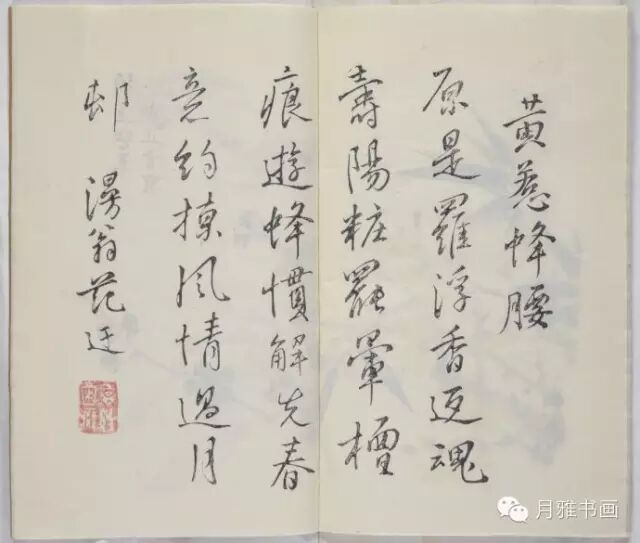 黄惹蜂腰
原是羅浮香返魂
壽陽粧罷暈檀
痕遊蜂慣解先春
意約揀風情過月
邨 漫翁范
月雅书画